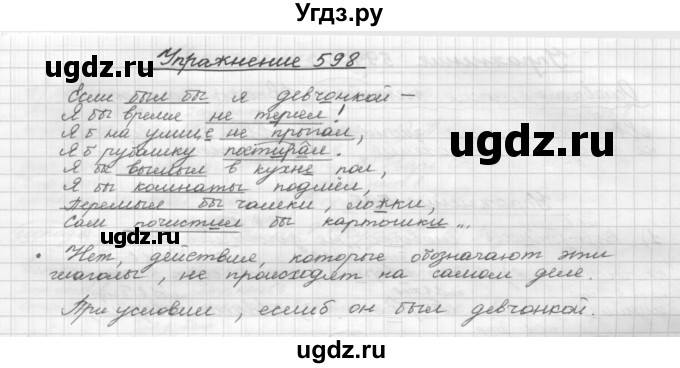 Угдз.ру
Упражнение 598
ugdz.ru
Если был бы я девчонкой –
Я бы время не терял!
Я б на улице не прыгал,
Я б рубашку постирал.
ugdz.ru
Я бы вымыл в кухне пол,
Я бы комнаты подмёл,
Перемыл бы чашки, ложки,
Сам почистил бы картошки...
ugdz.ru
Нет, действие, которые обозначают эти
глаголы, не происходят на самом деле.
При условии, еслиб он был девчонкой.
ugdz.ru
Угдз.ру